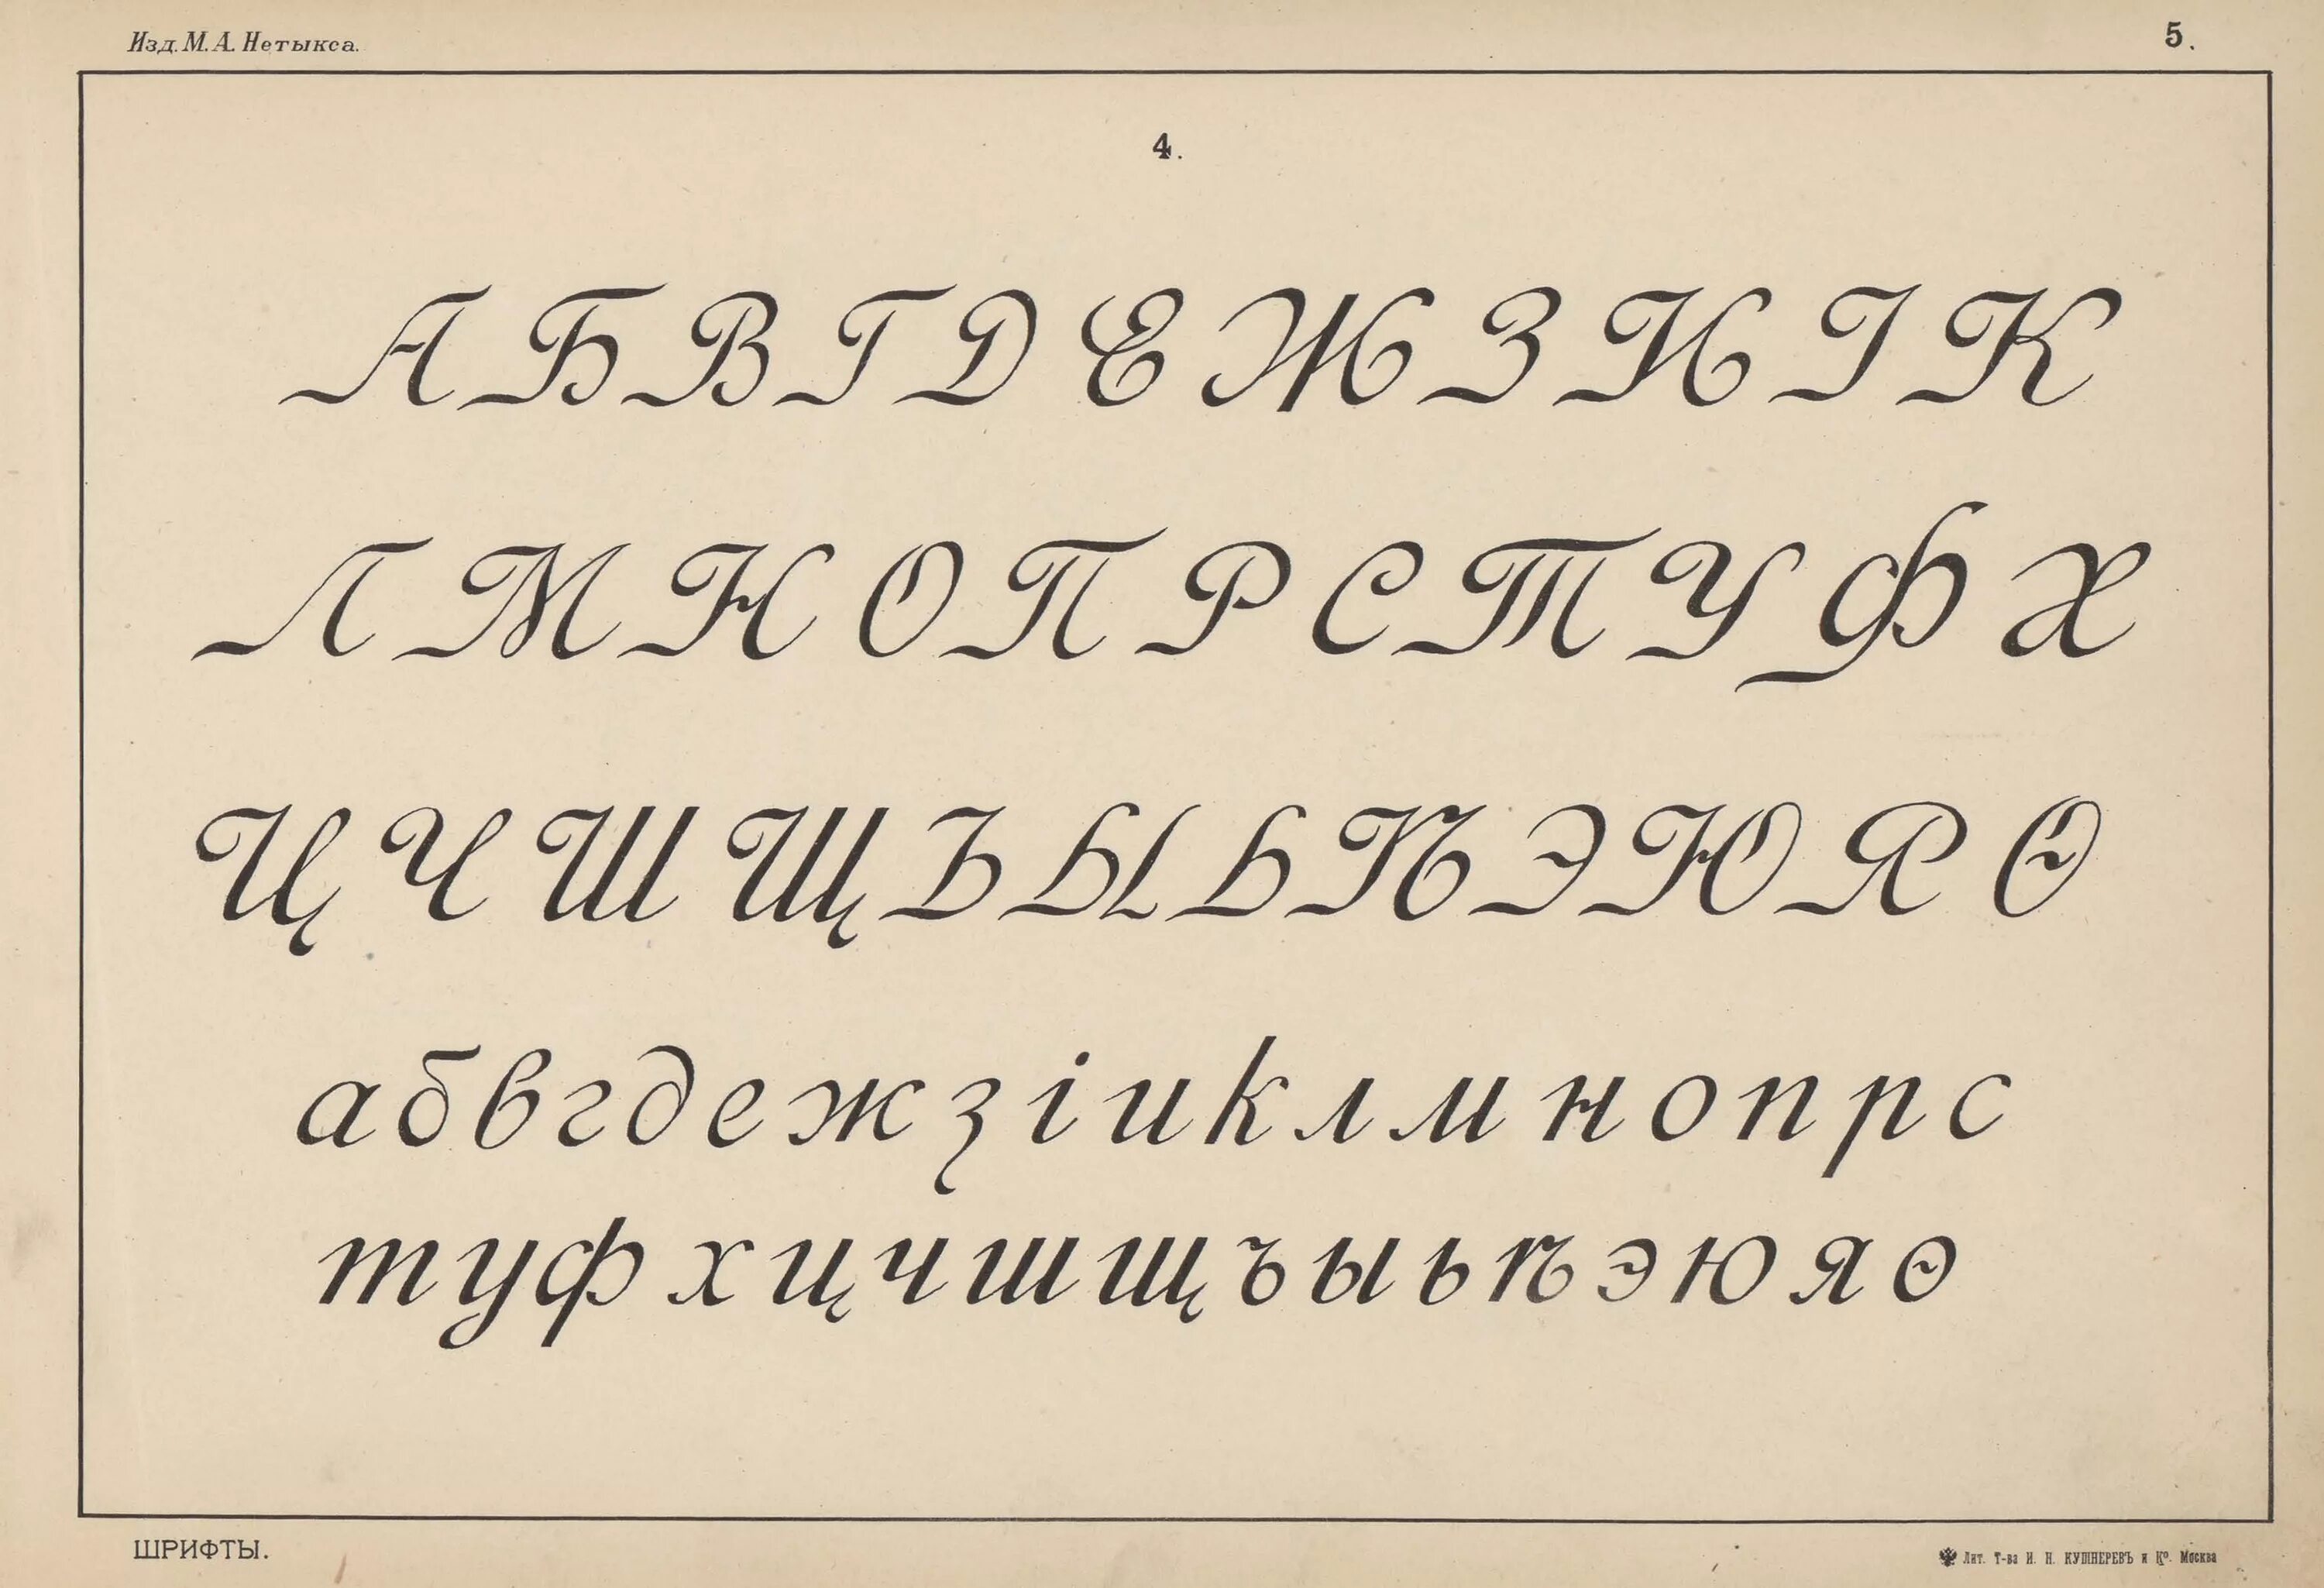 Изд. М. А. Нетыкса.
5.
4.
А Б В Г Д Е Ж З И І К
Л М Н О П Р С Т У Ф Х
Ц Ч Ш Щ Ъ Ы Ь Ѣ Э Ю Я Ѳ
а б в г д е ж з і и к л м н о п р с
т у ф х ц ч ш щ ъ ы ь ѣ э ю я ѳ
ШРИФТЫ.
Лит. Т-ва И. Н. КУШНЕРЕВЪ и Кº. Москва